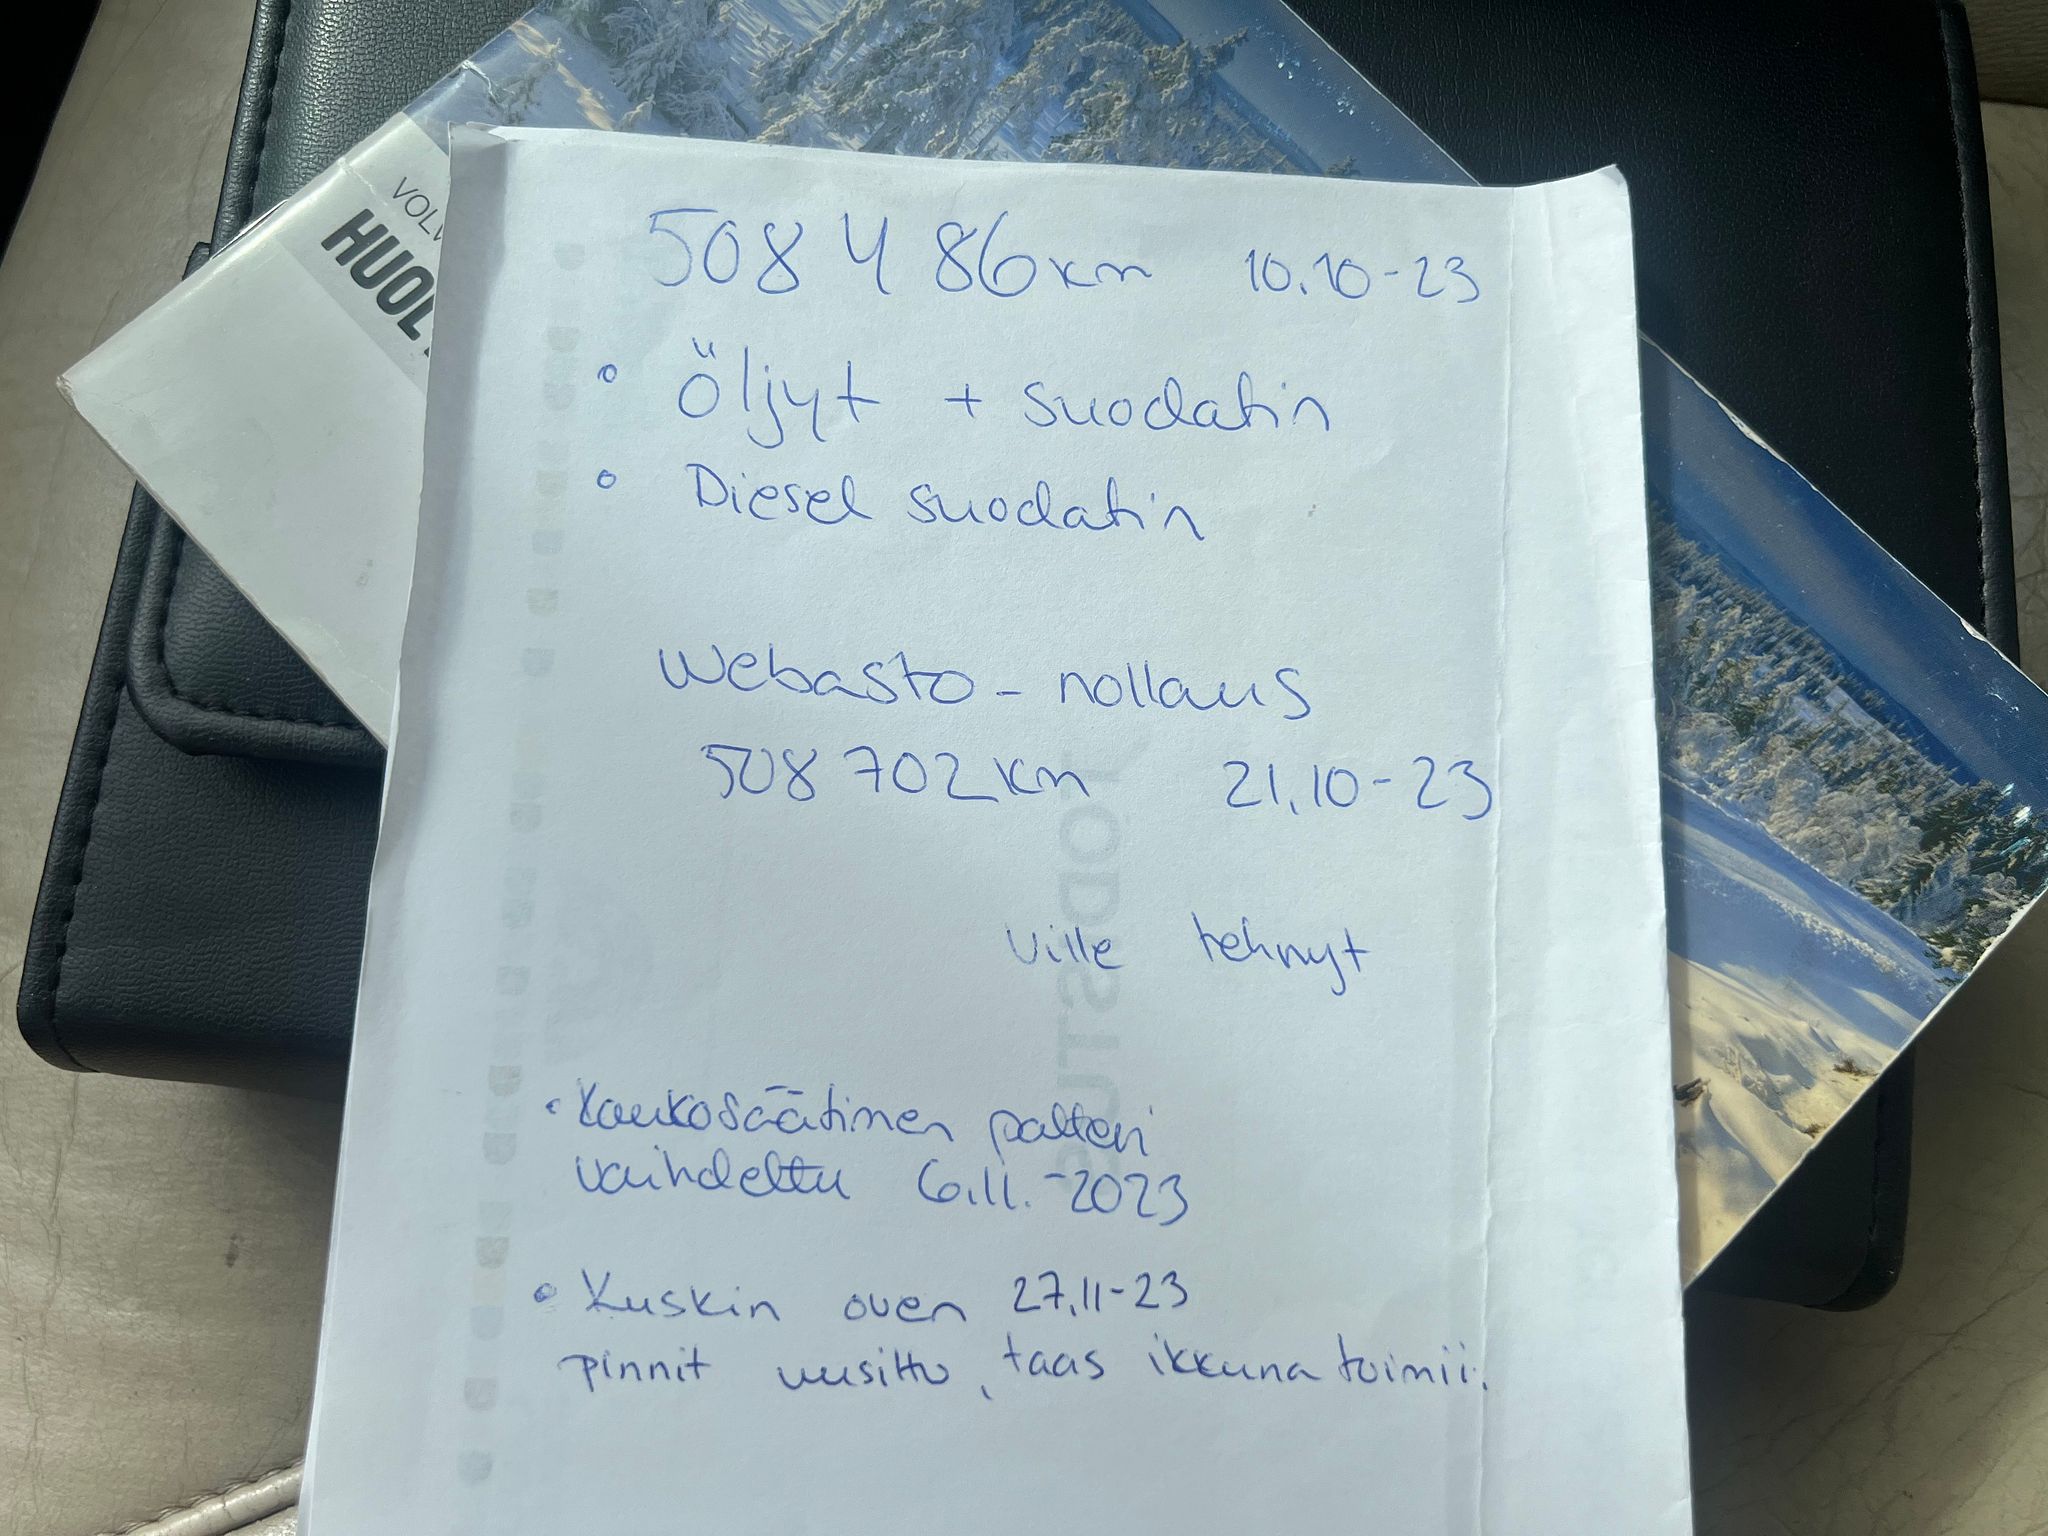 VOLV
HUOL
508 486 km 10.10-23
• Öljyt + suodatin
• Diesel suodatin
Webasto - nollaus
508 702 km 21.10-23
Ville tehnyt
• Kaukosäätimen patteri
vaihdettu 6.11.-2023
• Kuskin oven 27.11-23
pinnit uusittu, taas ikkuna toimii.